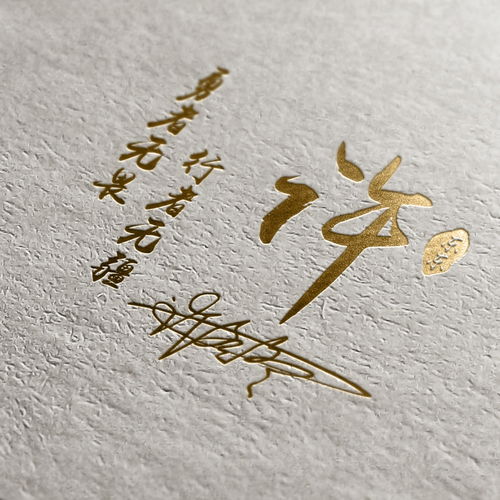 许
勇者无畏
行者无疆